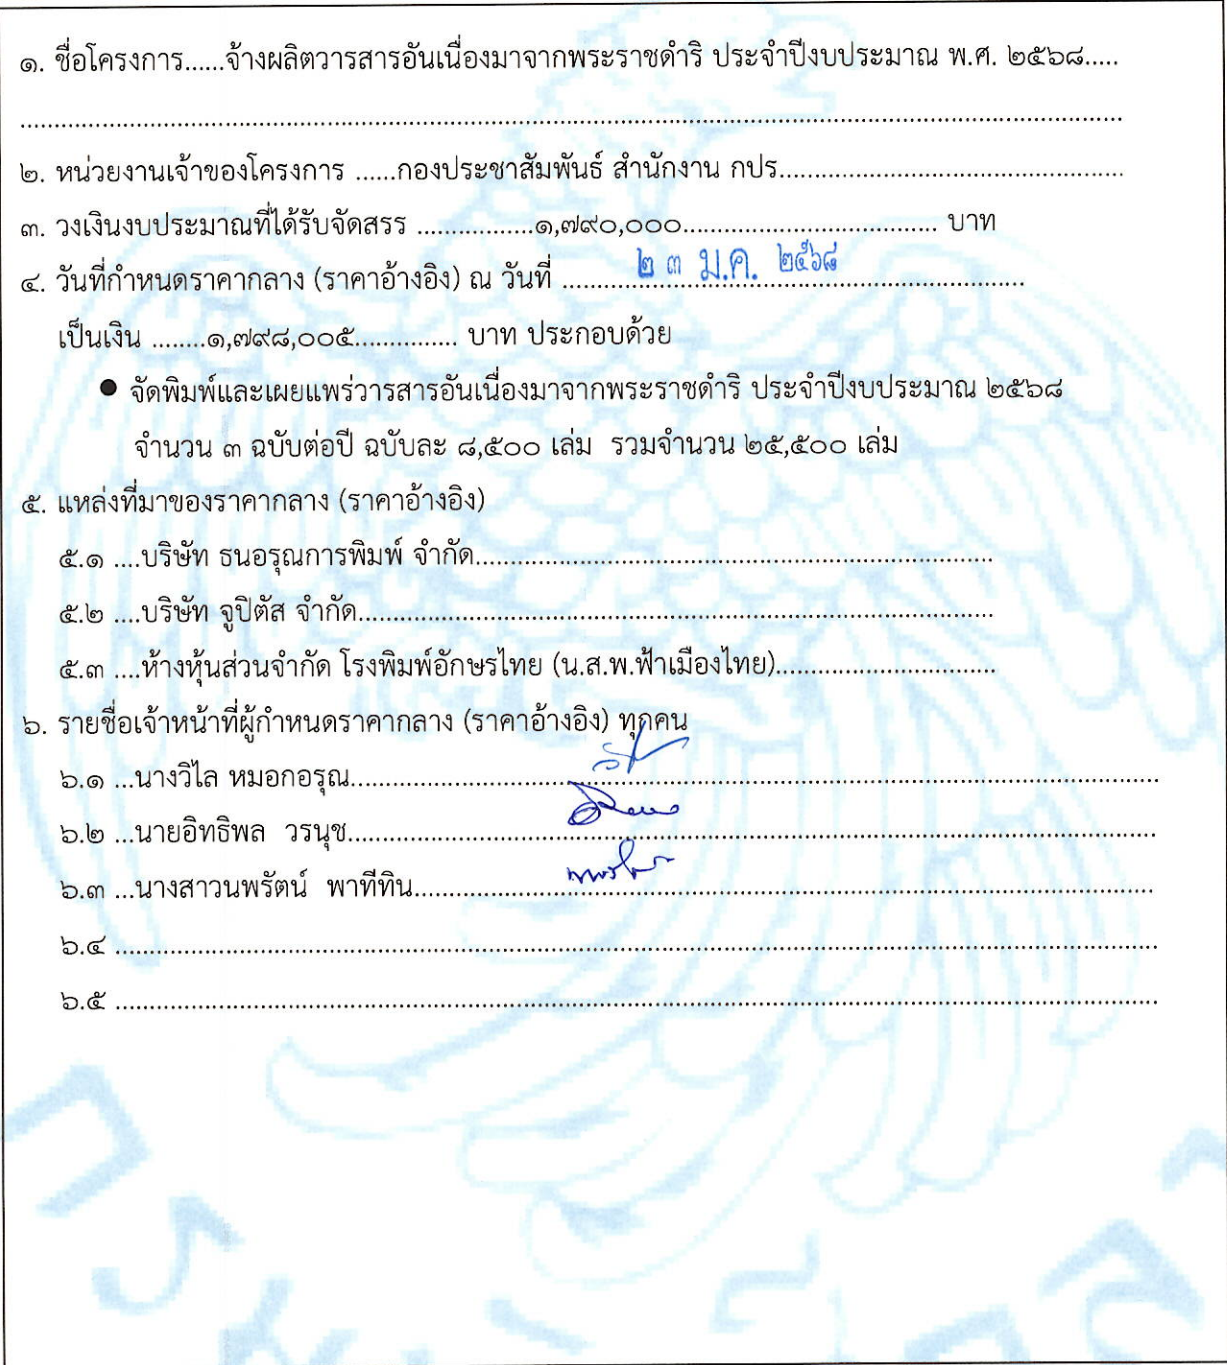 ๑. ชื่อโครงการ......จ้างผลิตวารสารอันเนื่องมาจากพระราชดำริ ประจำปีงบประมาณ พ.ศ. ๒๕๖๘.....
๒. หน่วยงานเจ้าของโครงการ ......กองประชาสัมพันธ์ สำนักงาน กปร..................................................
๓. วงเงินงบประมาณที่ได้รับจัดสรร .................๑,๗๙๐,๐๐๐..................................... บาท
๔. วันที่กำหนดราคากลาง (ราคาอ้างอิง) ณ วันที่ ...๒๓ ม.ค. ๒๕๖๘...
เป็นเงิน ........๑,๗๙๘,๐๐๕............... บาท ประกอบด้วย
● จัดพิมพ์และเผยแพร่วารสารอันเนื่องมาจากพระราชดำริ ประจำปีงบประมาณ ๒๕๖๘
จำนวน ๓ ฉบับต่อปี ฉบับละ ๘,๕๐๐ เล่ม รวมจำนวน ๒๕,๕๐๐ เล่ม
๕. แหล่งที่มาของราคากลาง (ราคาอ้างอิง)
๕.๑ ....บริษัท ธนอรุณการพิมพ์ จำกัด...........................................................................
๕.๒ ....บริษัท จูปิตัส จำกัด............................................................................................
๕.๓ ....ห้างหุ้นส่วนจำกัด โรงพิมพ์อักษรไทย (น.ส.พ.ฟ้าเมืองไทย)................................
๖. รายชื่อเจ้าหน้าที่ผู้กำหนดราคากลาง (ราคาอ้างอิง) ทุกคน
๖.๑ ...นางวิไล หมอกอรุณ.....................................................................................................
๖.๒ ...นายอิทธิพล วรนุช.....................................................................................................
๖.๓ ...นางสาวนพรัตน์ พาทีทิน..............................................................................................
๖.๔ ..........................................................................................................................
๖.๕ ..........................................................................................................................